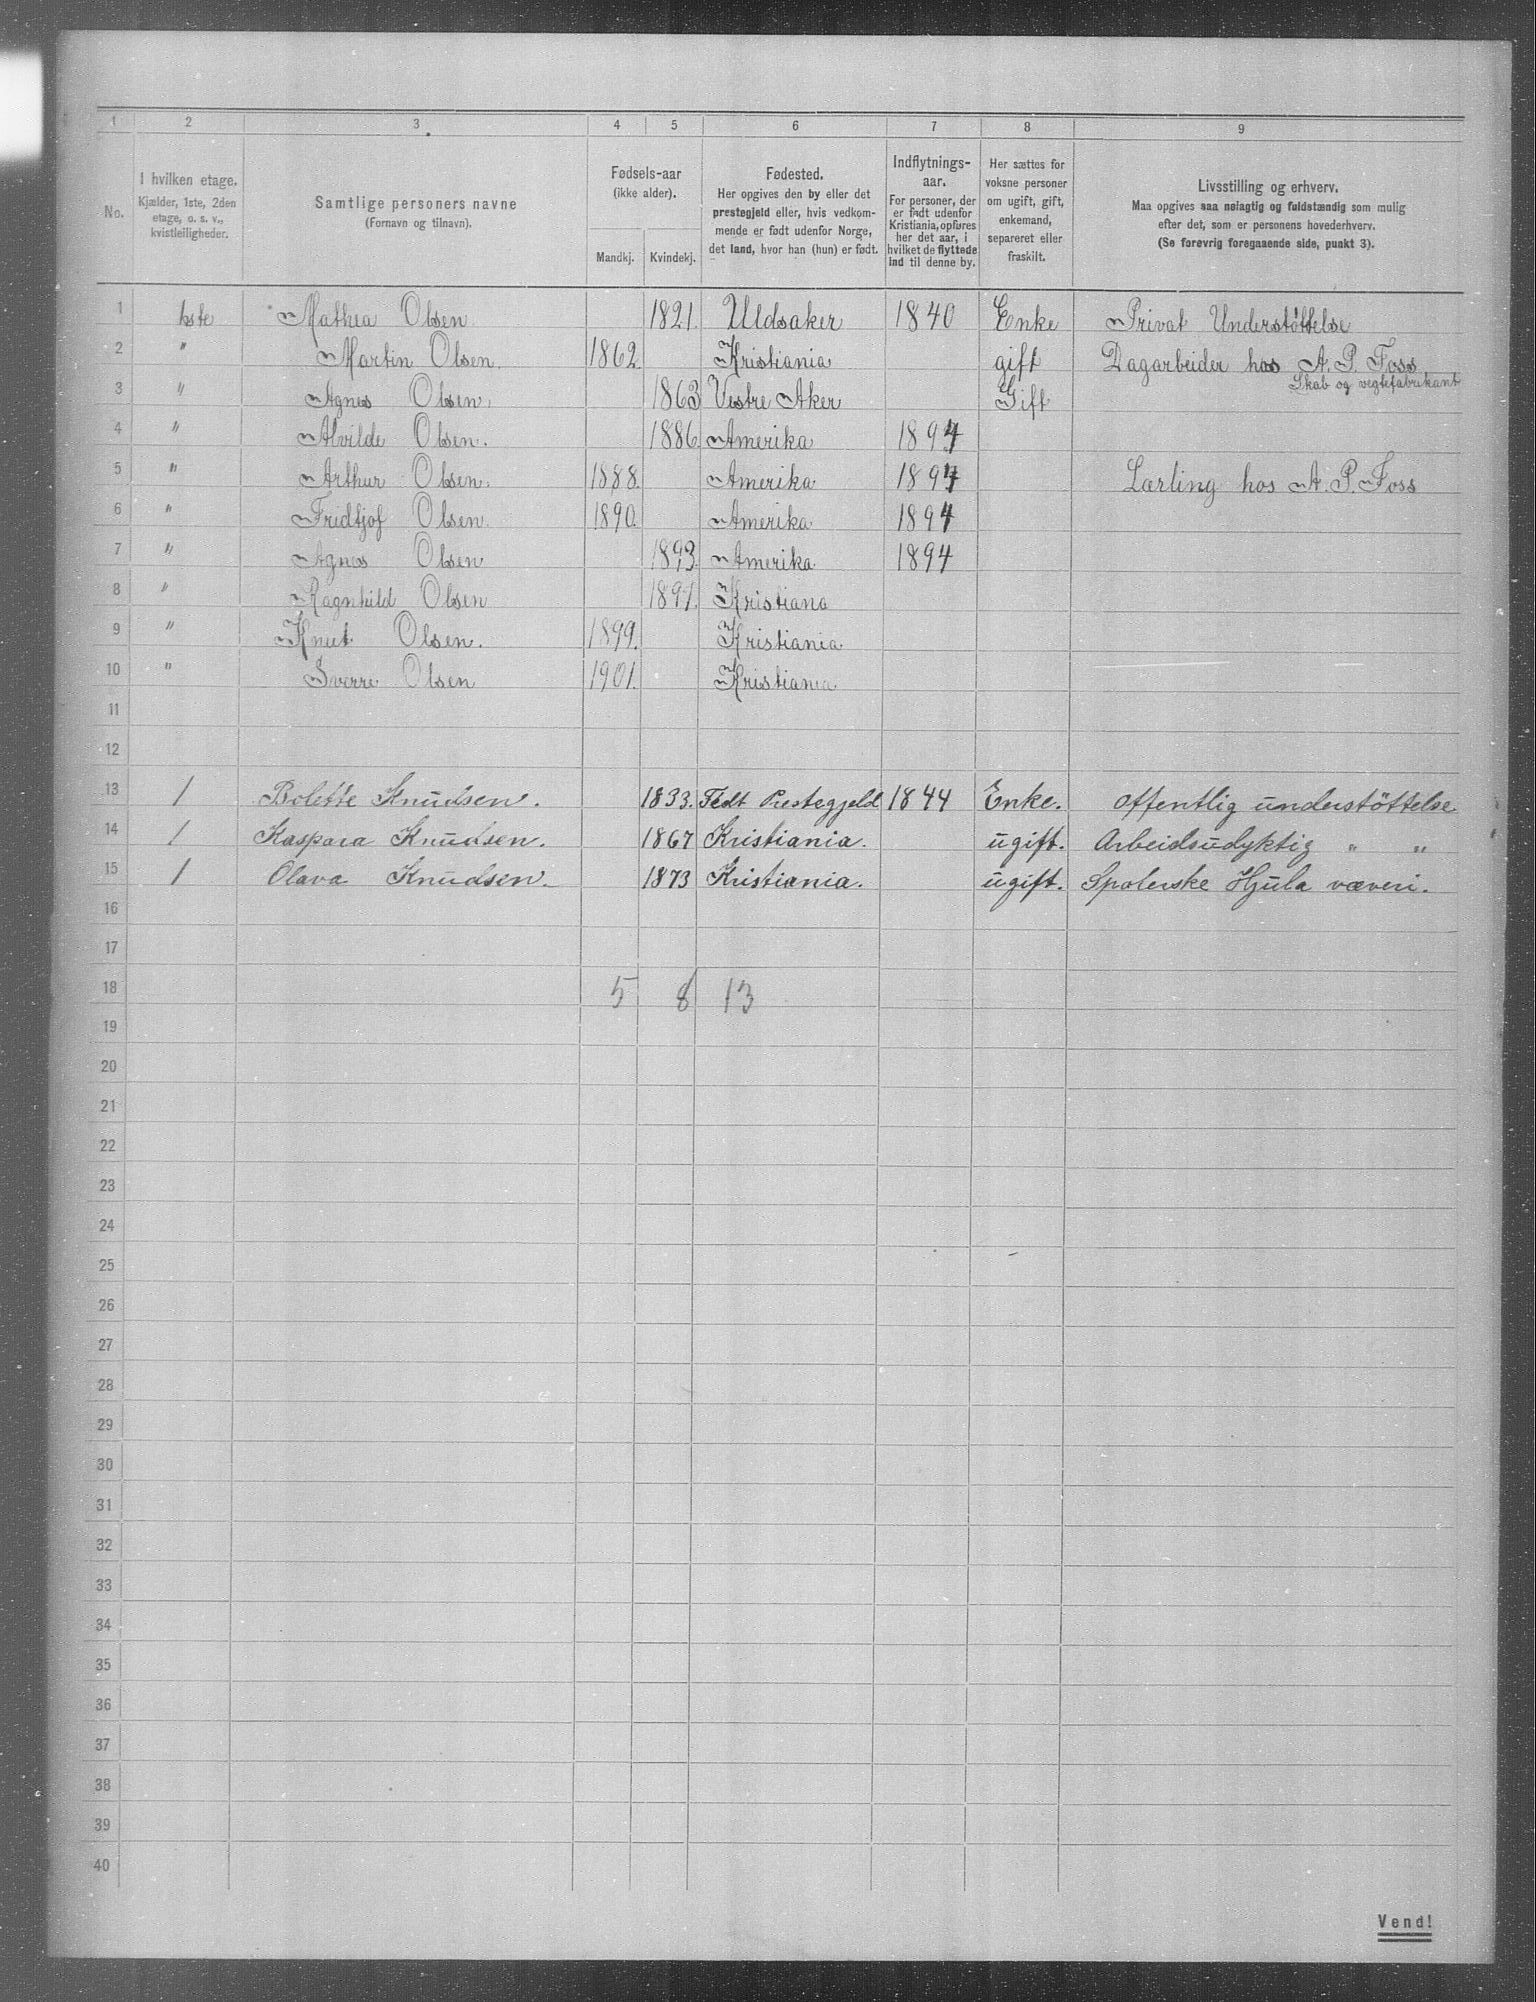 1 2 3 4 5 6 7 8 9
No.
I hvilken etage.
Kjælder, 1ste, 2den
etage, o. s. v.,
kvistleiligheder.
Samtlige personers navne
(Fornavn og tilnavn).
Fødsels-aar
(ikke alder).
Mandkj. Kvindekj.
Fødested.
Her opgives den by eller det
prestegjeld eller, hvis vedkom-
mende er født udenfor Norge,
det land, hvor han (hun) er født.
Indflytnings-
aar.
For personer, der
er født udenfor
Kristiania, opføres
her det aar, i
hvilket de flyttede
ind til denne by.
Her sættes for
voksne personer
om ugift, gift,
enkemand,
separeret eller
fraskilt.
Livsstilling og erhverv.
Maa opgives saa nøiagtig og fuldstændig som mulig
efter det, som er personens hovederhverv.
(Se forøvrig foregaaende side, punkt 3).
1 1ste Mathea Olsen 1821. Uldsaker 1840 Enke Privat Understöttelse
2 " Martin Olsen. 1862. Kristiania gift Dagarbeider hos A. P. Foss
Skab og vegtefabrikant
3 " Agnes Olsen. 1863 Vestre Aker Gift
4 " Alvilde Olsen. 1886. Amerika 1894
5 " Arthur Olsen. 1888. Amerika 1894 Lærling hos A. P. Foss
6 " Fridtjof Olsen. 1890. Amerika 1894
7 " Agnes Olsen 1893. Amerika 1894
8 " Ragnhild Olsen 1897. Kristiana
9 " Knut Olsen. 1899. Kristiania
10 " Sverre Olsen 1901. Kristiania
11
12
13 1 Bolette Knudsen. 1833. Fedt Prestegjeld 1844 Enke. Offentlig understöttelse
14 1 Kaspara Knudsen. 1867 Kristiania. ugift. Arbeidsudyktig " "
15 1 Olava Knudsen. 1873 Kristiania. ugift. Spolerske Hjula væveri.
16
17
18 5 8 13
19
20
21
22
23
24
25
26
27
28
29
30
31
32
33
34
35
36
37
38
39
40
Vend!